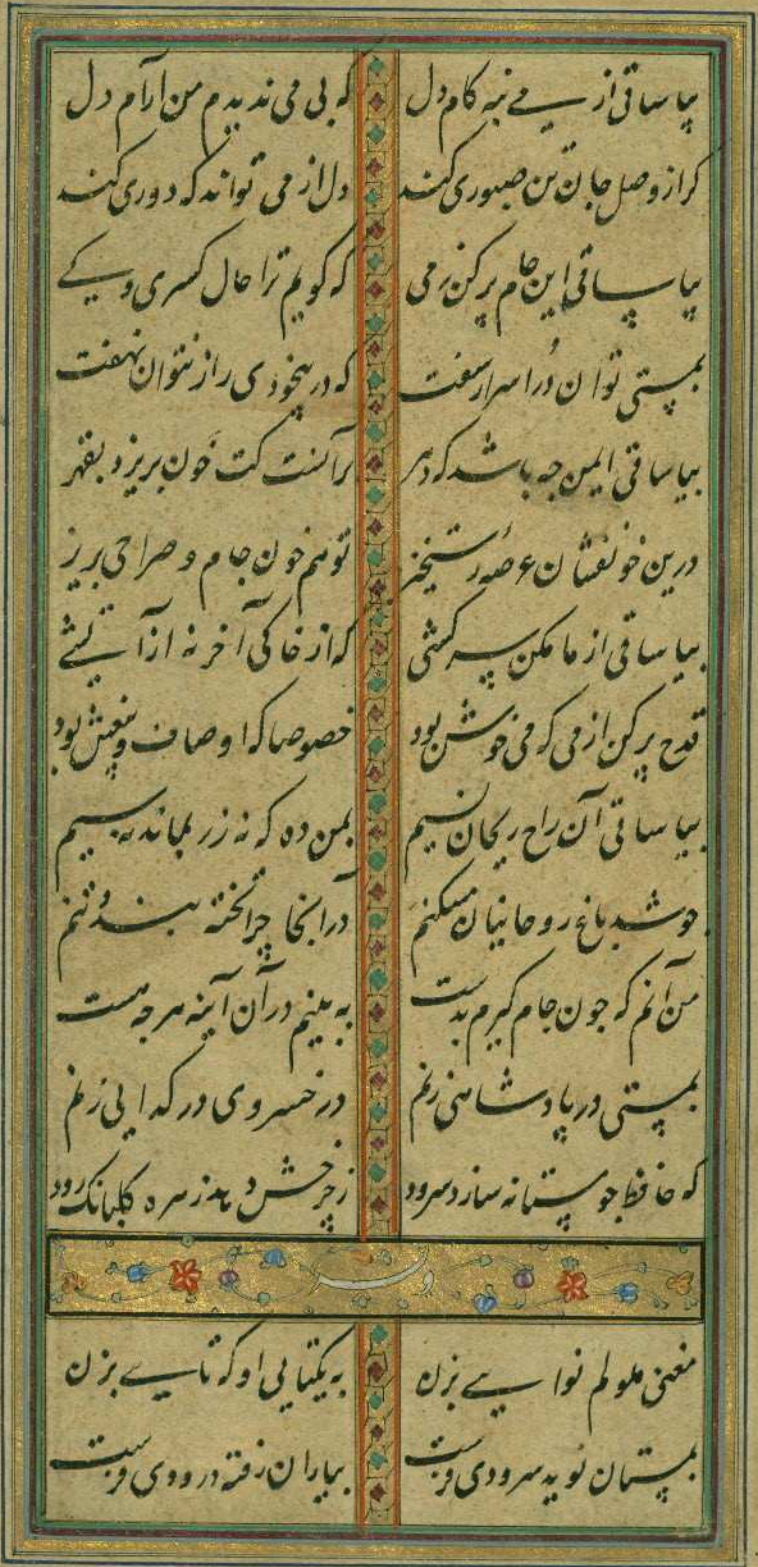 بیا ساقی از می بنه کام دل که بی می ندیدم من آرام دل
کر از وصل جان تن صبوری کند دل از می تواند که دوری کند
بیا ساقی این جام پر کن ز می که کویم ترا حال کسری و کی
بمستی توان در اسرار سفت که در بیخودی راز نتوان نهفت
بیا ساقی ایمن چه باشد که دهر برآنست کت خون بریزد بقهر
درین خونفشان عرصه رستخیز تو هم خون جام و صراحی بریز
بیا ساقی از ما مکن سرکشی که از خاکی آخر نه از آتشی
قدح پر کن از می که می خوش بود خصوصا که اوصاف و بیغش بود
بیا ساقی آن راح ریحان نسیم بمن ده که نه زر بماند نه سیم
چو شد باغ روحانیان مسکنم درانجا چرا تخته بند تنم
من آنم که چون جام کیرم بدست به بینم در آن آینه هرچه هست
بمستی در پادشاهی زنم در خسروی در کدایی زنم
که حافظ چو مستانه سازد سرود ز چرخش دهد زهره کلبانک رود
مغنی ملولم نوایی بزن به یکتایی او که تایی بزن
بمستان نوید سرودی فرست بیاران رفته درودی فرست